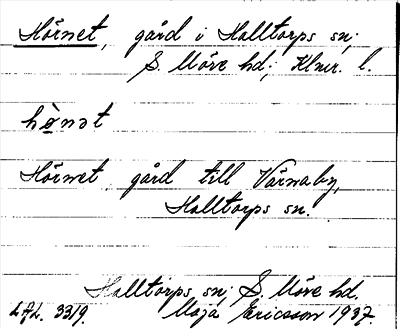 Hörnet, gård i Halltorps sn;
S. Möre hd; Klmr. l.
hò̤nət
Hörnet gård till Värnaby,
Halltorps sn.
Halltorps sn; S. Möre hd.
Lfl. 3319. Maja Ericsson 1937.